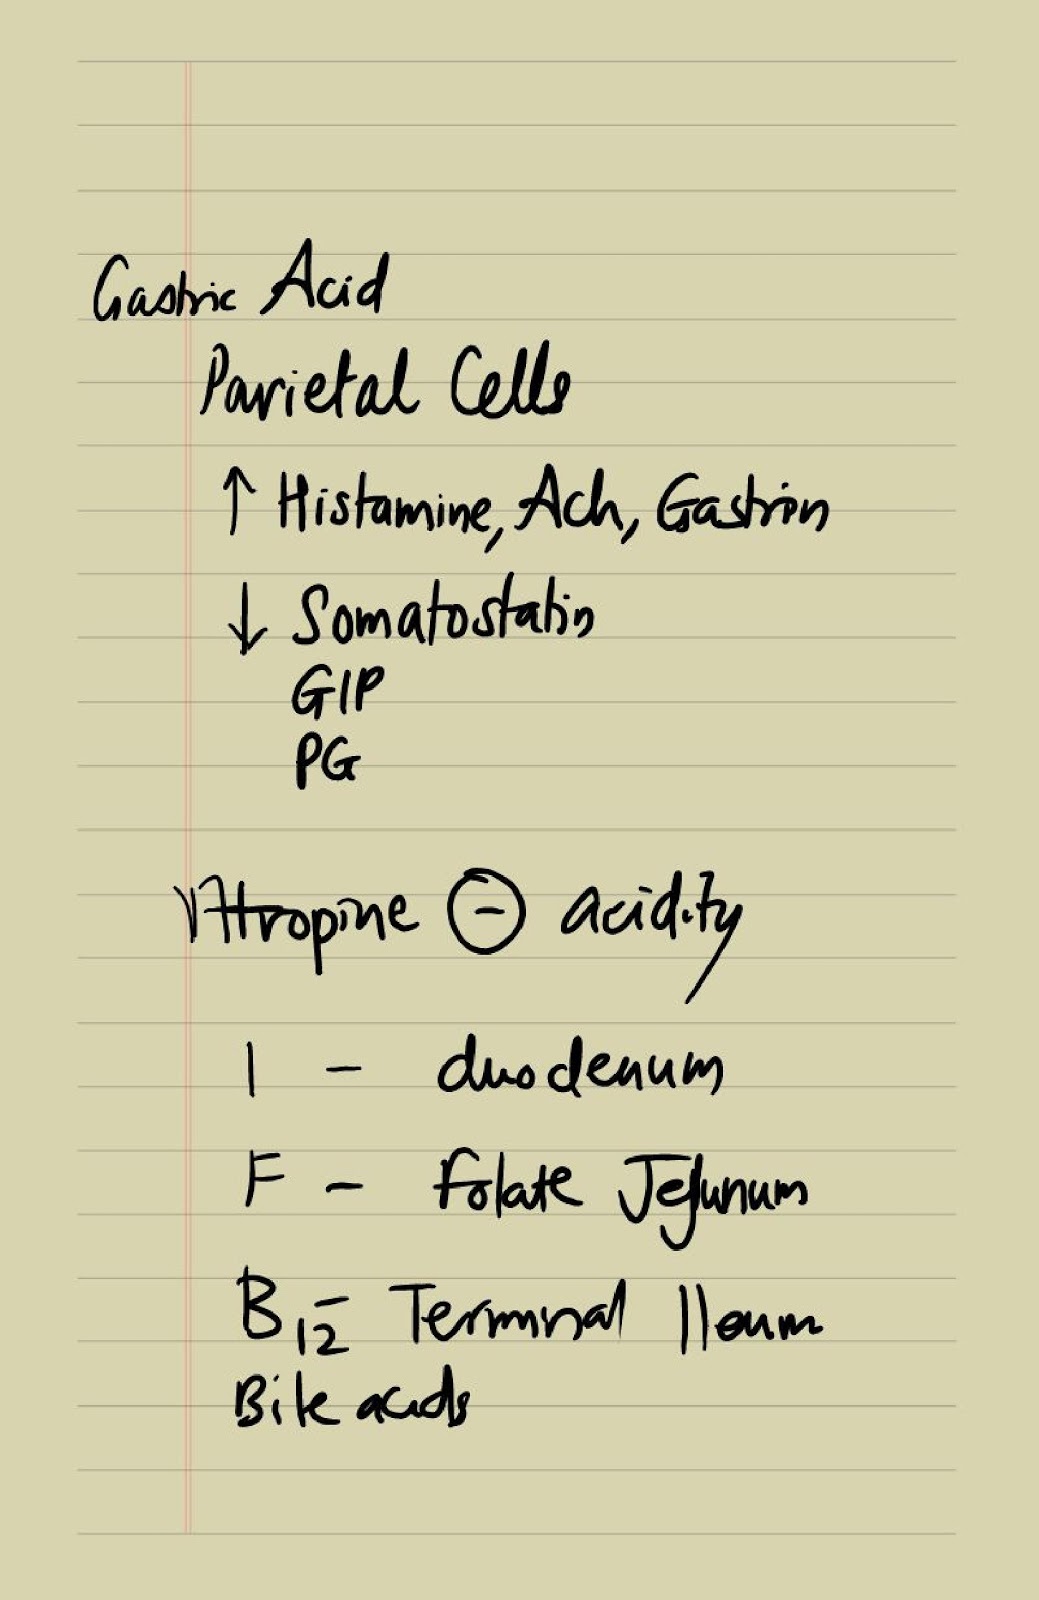 Gastric Acid
Parietal Cells
↑ Histamine, Ach, Gastrin
↓ Somatostatin
GIP
PG
Atropine ⊖ acidity
I - duodenum
F - folate Jejunum
B12 - Terminal Ileum
Bile acids